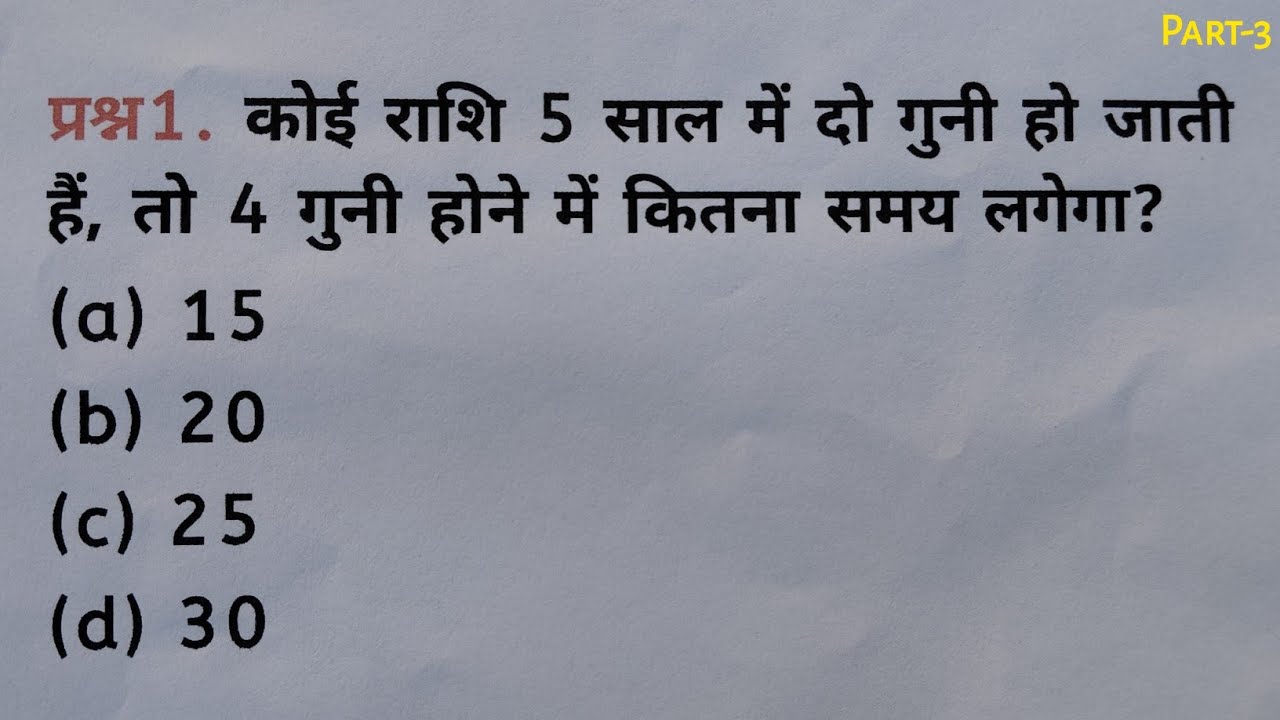 PART-3
प्रश्न1. कोई राशि 5 साल में दो गुनी हो जाती
हैं, तो 4 गुनी होने में कितना समय लगेगा?
(a) 15
(b) 20
(c) 25
(d) 30